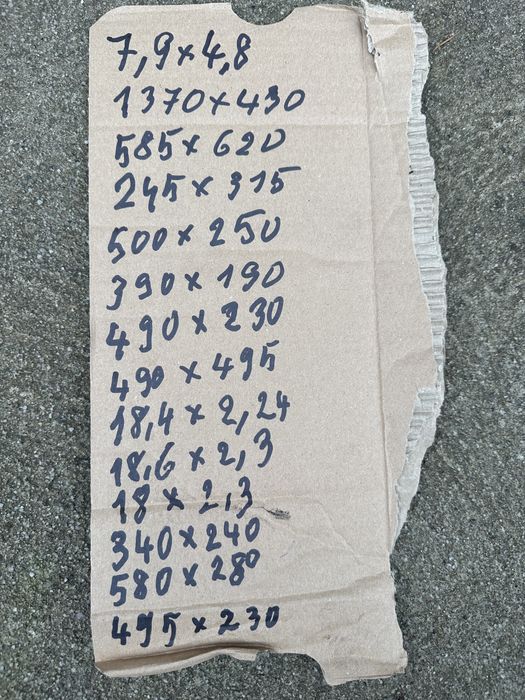 7,9 x 4,8
1370 x 430
585 x 620
245 x 315
500 x 250
390 x 190
490 x 230
490 x 495
18,4 x 2,24
18,6 x 2,3
18 x 2,3
340 x 240
580 x 280
495 x 230